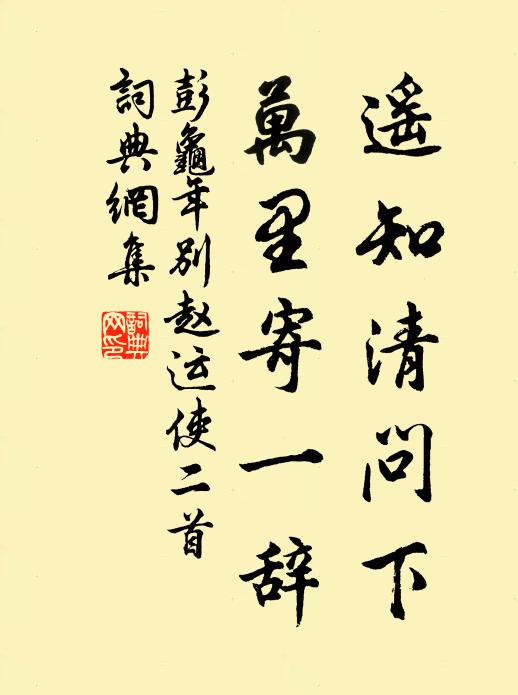 遥知清问下
萬里寄一辞
彭龜年别赵运使二首
詞典網集
詞典
网印